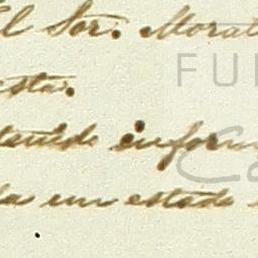 El Sor. Moral
esta.
tenido inform
da em estado
FU